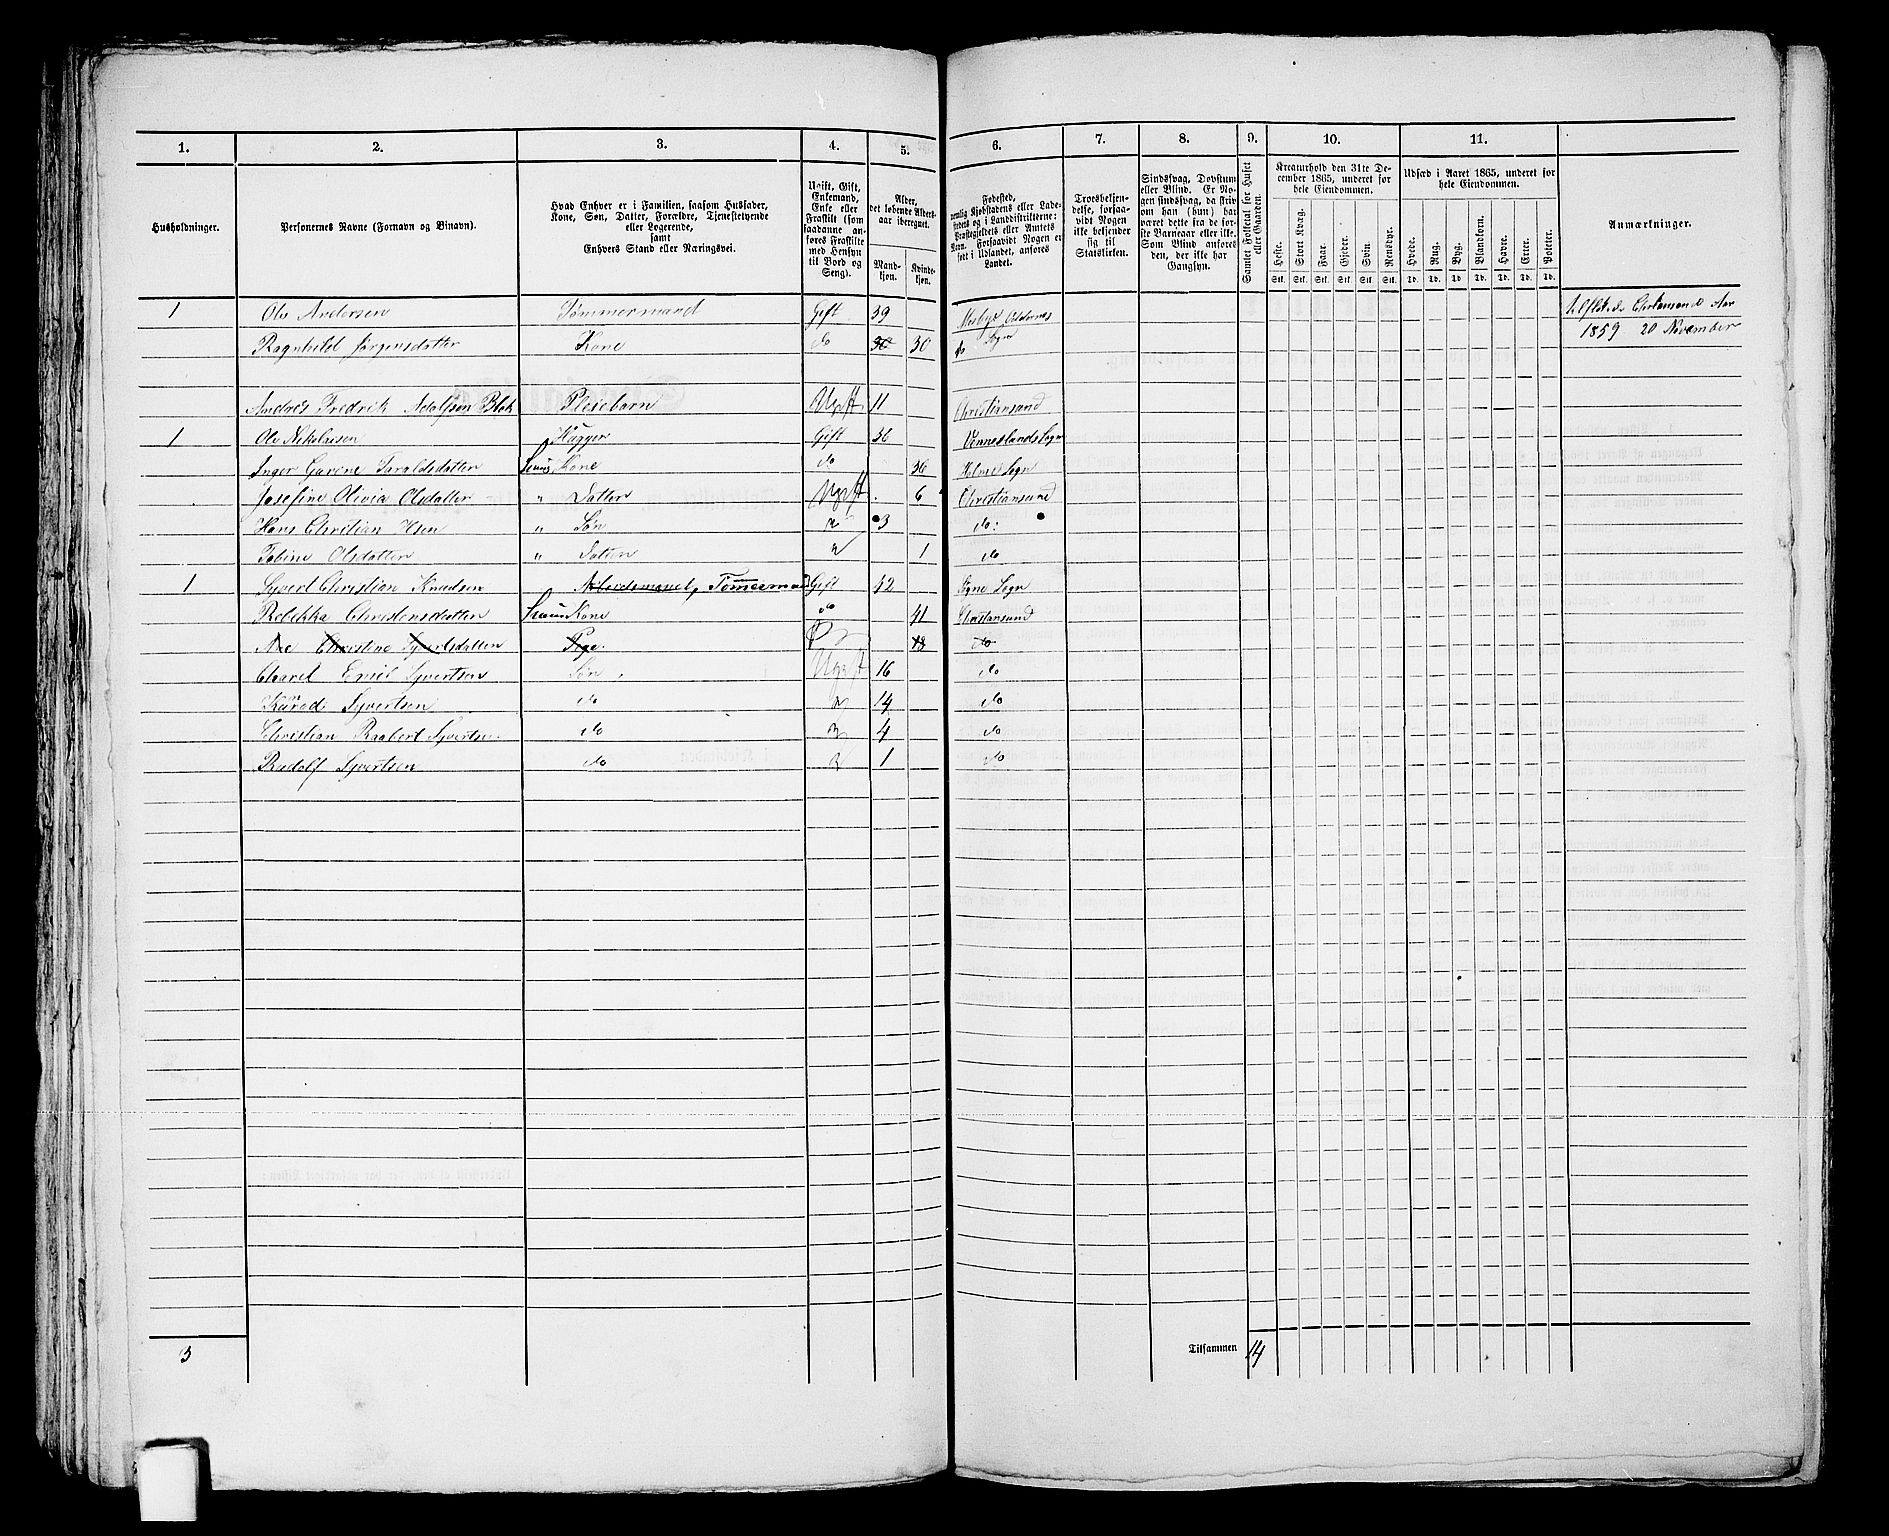 1. 2. 3. 4. 5. 6. 7. 8. 9. 10. 11.
Husholdninger.
Personernes Navne (Fornavn og Binavn).
Hvad Enhver er i Familien, saasom Husfader,
Kone, Søn, Datter, Forældre, Tjenestetyende
eller Logerende,
samt
Enhvers Stand eller Næringsvei.
Ugift, Gift,
Enkemand,
Enke eller
Fraskilt (som
saadanne an-
føres Fraskilte
med Hensyn
til Bord og
Seng).
Alder,
det løbende Alders-
aar iberegnet.
Mand-
kjøn.
Kvinde-
kjøn.
Fødested,
nemlig Kjøbstadens eller Lade-
stedets og i Landdistrikterne:
Præstegjeldets eller Amtets
Navn. Forsaavidt Nogen er
født i Udlandet, anføres
Landet.
Troesbekjen-
delse, forsaa-
vidt Nogen
ikke bekjender
sig til
Statskirken.
Sindssvag, Døvstum
eller Blind. Er No-
gen sindssvag, da hvis
om han (hun) har
været dette fra de før-
ste Barneaar eller ikke.
Som Blind anføres
den, der ikke har
Gangsyn.
Samlet Folketal for Huset
eller Gaarden.
Kreaturhold den 31te De-
cember 1865, underet for
hele Eiendommen.
Heste. Stort Kvæg. Faar. Gjeder. Svin. Rensdyr.
Stk. Stk. Stk. Stk. Stk. Stk.
Udsæd i Aaret 1865, underet for
hele Eiendommen.
Hvede. Rug. Byg. Blandkorn. Havre. Erter. Poteter.
Td. Td. Td. Td. Td. Td. Td.
Anmærkninger.
1 Ole Andersen Tømmermand Gift 39 Mosbye Oddernes
Christiansand Aar
Ragnhild Jørgensdatter Kone do 30 30 do Sogn
1859 20 November
Andres Fredrik Adolfsen Blok Plesebarn Ugift 11 Christiansand
1 Ole Nikolaisen Gift 36 Venneslands Sogn
Inger Gurine Taraldsdatter Hans Kone do 36 Holme Sogn
Josefine Olivia Olsdatter " Datter Ugift 6 Christiansand
Hans Christian Olsen " Søn 3 do:
Tobine Olsdatter " Datter 1 do
1 Syvert Christian Knudsen Arbeidsmand Tømmermand Gift 42 Søgne Sogn
Rebekka Christensdatter Hans Kone do 41 Christiansand
Ane Christine Syvertsdatter Pige 18 do
Emil Syvertsen Søn Ugift 16 do
Syvertsen do 14 do
Christian Raabert Syvertsen do 4 do
Rudolf Syvertsen do 1 do
3 Tilsammen 14